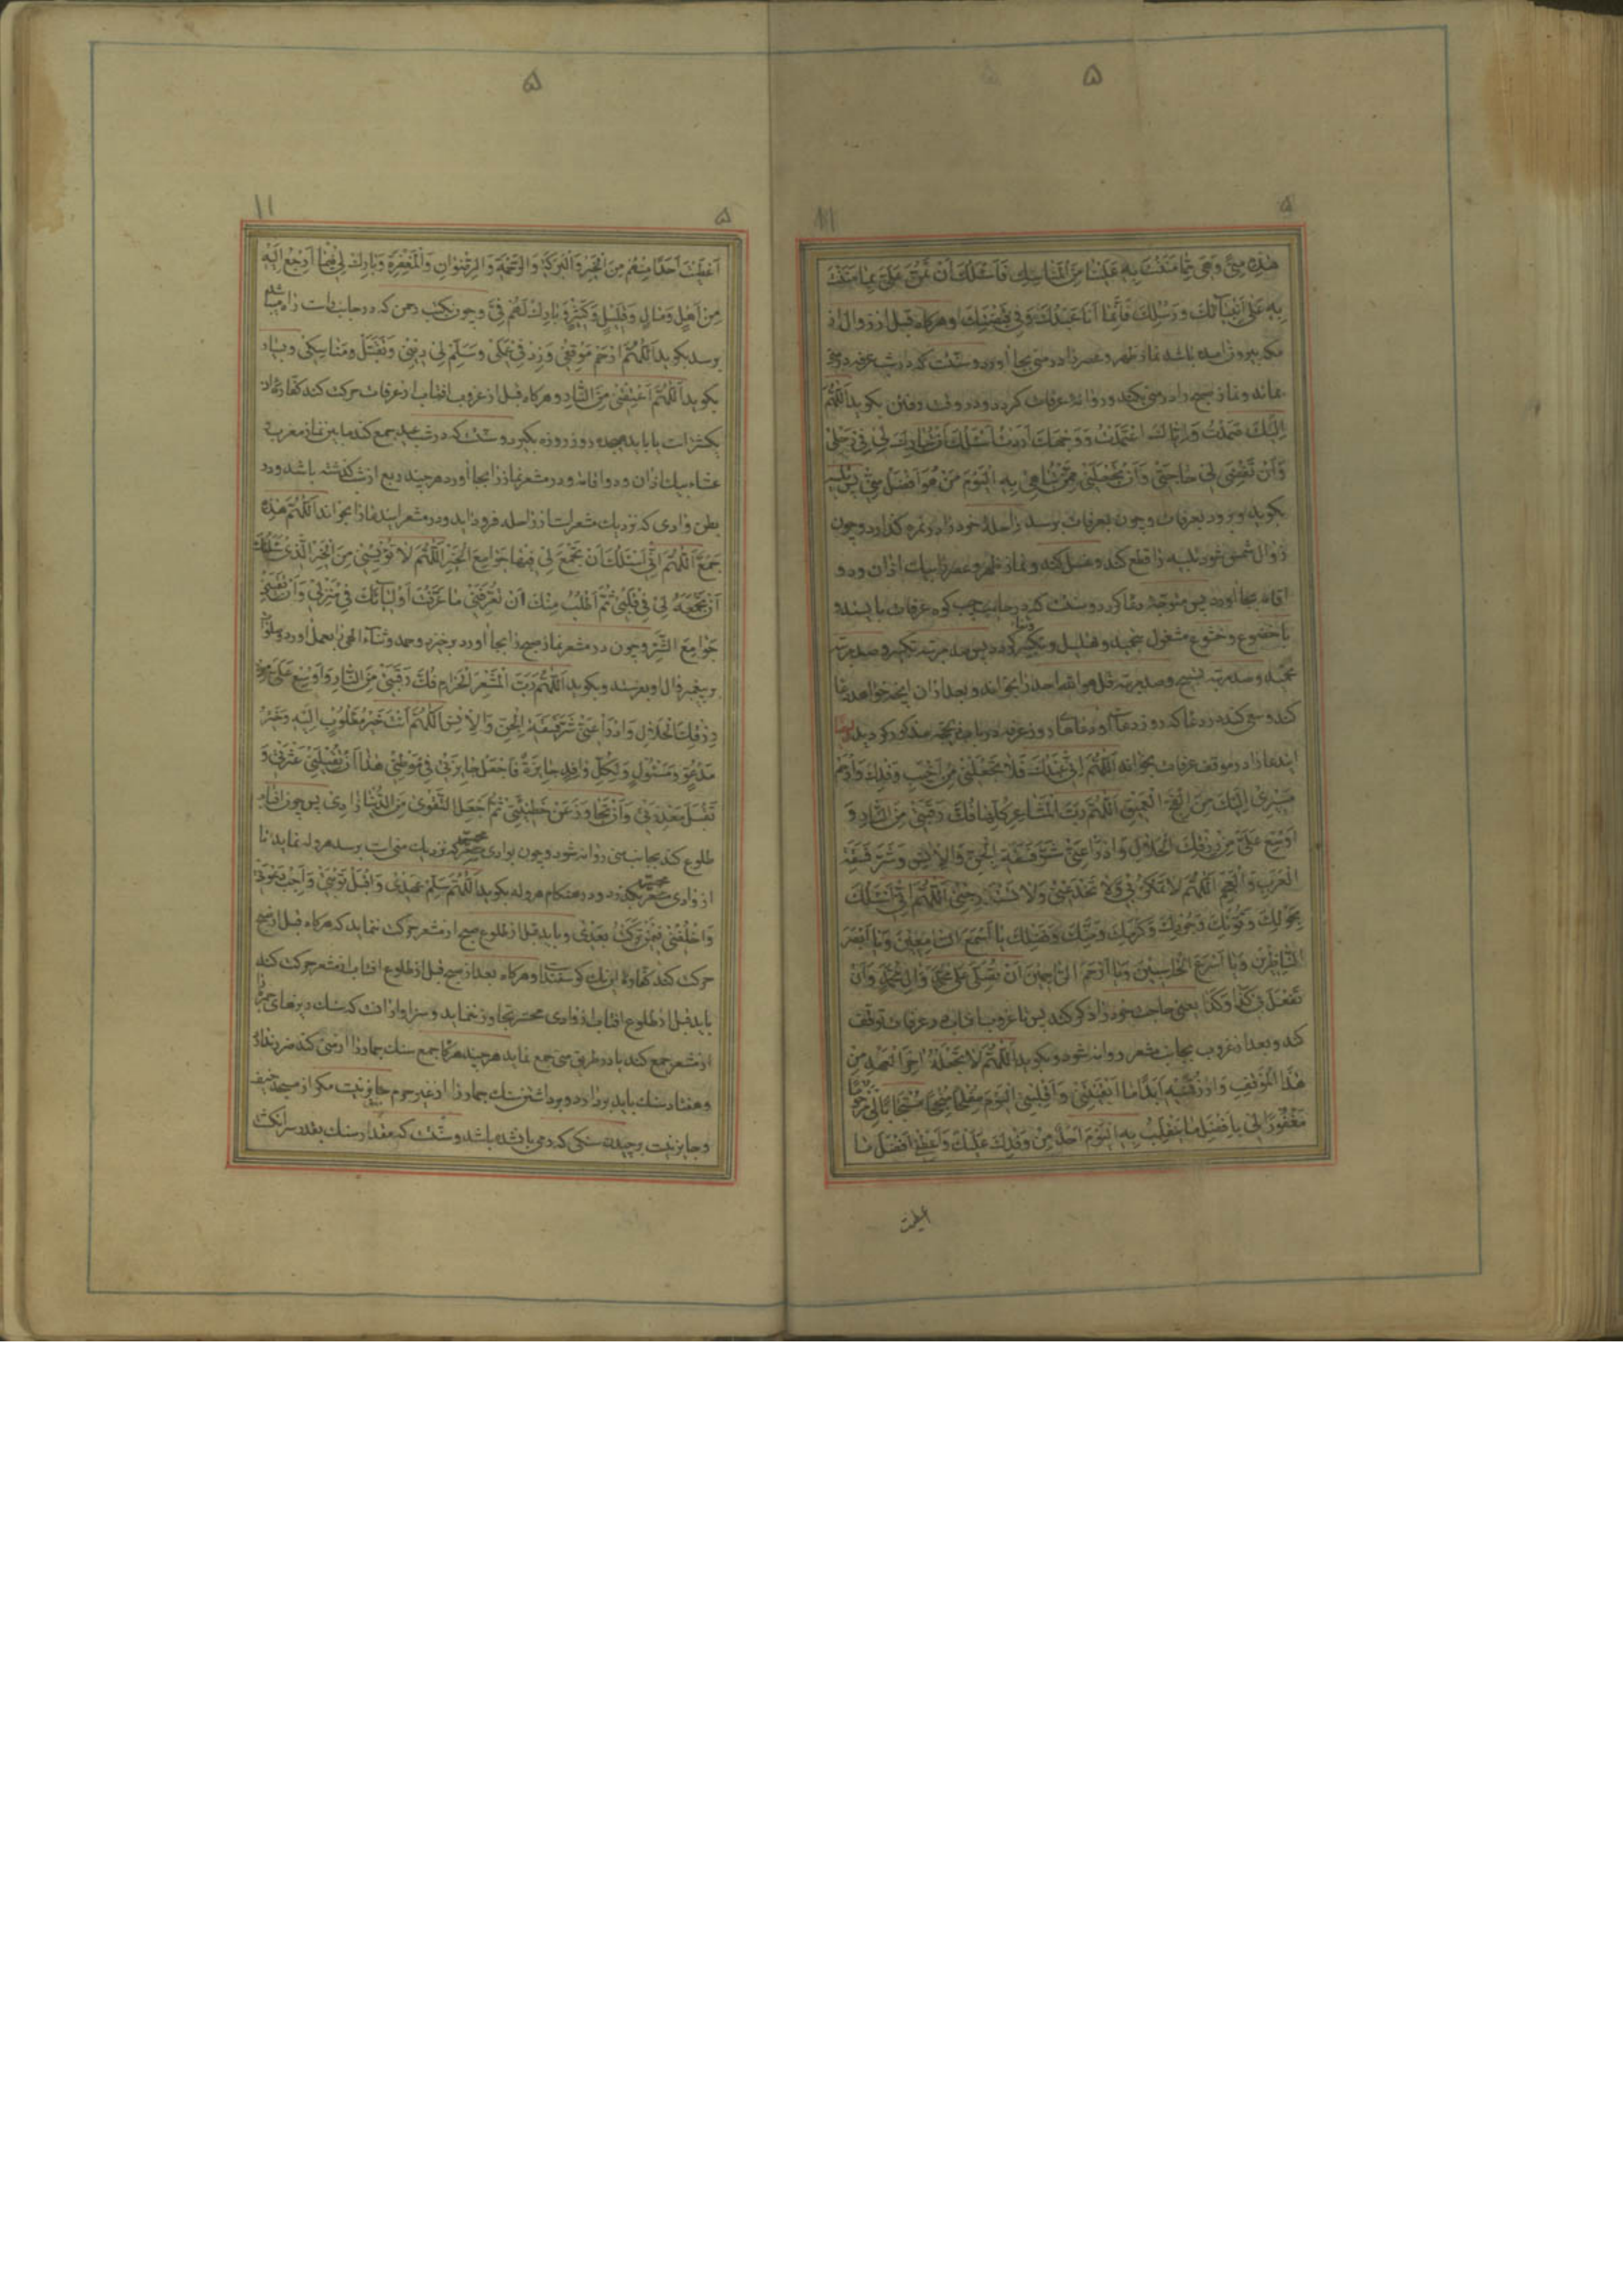 ۵
۵
۱۱
هٰذِهِ مِنىً وَهِیَ مِمَّا مَنَنْتَ بِهِ عَلَیْنَا مِنَ الْمَنَاسِكِ فَاَسْئَلُكَ اَنْ تَمُنَّ عَلَیَّ بِمَا مَنَنْتَ
بِهِ عَلیٰ اَنْبِیَآئِكَ وَرُسُلِكَ فَاِنَّمَا اَنَا عَبْدُكَ وَفِی قَبْضَتِكَ وهرکاه قبل از زوال از
مکه بیرون امده باشد نماز ظهر و عصر را در منی بجا اورد و سنّت که در شب عرفه در منی
بماند و نماز صبح را در منی بکند و روانه عرفات کردد و در وقت رفتن بکوید اَللّٰهُمَّ
اِلَیْكَ صَمَدْتُ وَاِیَّاكَ اعْتَمَدْتُ وَوَجْهَكَ اَرَدْتُ اَسْئَلُكَ اَنْ تُبَارِكَ لِی فِی رَحْلِی
وَاَنْ تَقْضِیَ لِی حَاجَتِی وَاَنْ تَجْعَلَنِی مِمَّنْ تُبَاهِی بِهِ الْیَوْمَ مَنْ هُوَ اَفْضَلُ مِنِّی پس تلبیه
بکوید و برود بعرفات و چون بعرفات برسد راحلهٔ خود را در نمره کذارد و چون
زوال شمس شود تلبیه را قطع کند و غسل کند و نماز ظهر و عصر را بیك اذان و دو
اقامه بجا اورد پس متوجّه دعا کردد و سنّت که در جانب چپ کوه عرفات بایستد و
با خضوع و خشوع مشغول تحمید و تهلیل و تکبیر و ثنا کردد پس صد مرتبه تکبیر و صد مرتبه
تحمید و صد مرتبه تسبیح و صد مرتبه قل هو الله احد را بخواند و بعد از ان انچه خواهد دعا
کند و سعی کند در دعا که روز دعا است و دعاهای روز عرفه در باب ذیحجّه مذکور کردید
ایندعا را در موقف عرفات بخواند اَللّٰهُمَّ اِنِّی عَبْدُكَ فَلَا تَجْعَلْنِی مِنْ اَخْیَبِ وَفْدِكَ وَارْحَمْ
مَسِیرِی اِلَیْكَ مِنَ الْفَجِّ الْعَمِیقِ اَللّٰهُمَّ رَبَّ الْمَشَاعِرِ کُلِّهَا فُكَّ رَقَبَتِی مِنَ النَّارِ وَ
اَوْسِعْ عَلَیَّ مِنْ رِزْقِكَ الْحَلَالِ وَادْرَأْ عَنِّی شَرَّ فَسَقَةِ الْجِنِّ وَالْاِنْسِ وَشَرَّ فَسَقَةِ
الْعَرَبِ وَالْعَجَمِ اَللّٰهُمَّ لَا تَمْکُرْ بِی وَلَا تَخْدَعْنِی وَلَا تَسْتَدْرِجْنِی اَللّٰهُمَّ اِنِّی اَسْئَلُكَ
بِحَوْلِكَ وَقُوَّتِكَ وَجُودِكَ وَکَرَمِكَ وَمَنِّكَ وَفَضْلِكَ یَا اَسْمَعَ السَّامِعِینَ وَیَا اَبْصَرَ
النَّاظِرِینَ وَیَا اَسْرَعَ الْحَاسِبِینَ وَیَا اَرْحَمَ الرَّاحِمِینَ اَنْ تُصَلِّیَ عَلیٰ مُحَمَّدٍ وَآلِ مُحَمَّدٍ وَاَنْ
تَفْعَلَ بِی کَذَا وَکَذَا یعنی حاجت خود را ذکر کند پس تا غروب افتاب در عرفات توقف
کند و بعد از غروب بجانب مشعر روانه شود و بکوید اَللّٰهُمَّ لَا تَجْعَلْهُ اٰخِرَ الْعَهْدِ مِنْ
هٰذَا الْمَوْقِفِ وَارْزُقْنِیهِ اَبَداً مَا اَبْقَیْتَنِی وَاقْلِبْنِی الْیَوْمَ مُفْلِحاً مُنْجِحاً مُسْتَجَاباً لِی مَرْحُوماً
مَغْفُوراً لِی بِاَفْضَلِ مَا یَنْقَلِبُ بِهِ الْیَوْمَ اَحَدٌ مِنْ وَفْدِكَ عَلَیْكَ وَاَعْطِنِی اَفْضَلَ مَا
اعطیت
۵
۵
۱۱
اَعْطَیْتَ اَحَداً مِنْهُمْ مِنَ الْخَیْرِ وَالْبَرَکَةِ وَالرَّحْمَةِ وَالرِّضْوَانِ وَالْمَغْفِرَةِ وَبَارِكْ لِی فِیمَا اَرْجِعُ اِلَیْهِ
مِنْ اَهْلٍ وَمَالٍ وَقَلِیلٍ وَکَثِیرٍ وَبَارِكْ لَهُمْ فِیَّ و چون بکثیب احمر که در جانب راست راه
برسد بکوید اَللّٰهُمَّ ارْحَمْ مَوْقِفِی وَزِدْ فِی عَمَلِی وَسَلِّمْ لِی دِینِی وَتَقَبَّلْ مَنَاسِکِی و بسیار
بکوید اَللّٰهُمَّ اَعْتِقْنِی مِنَ النَّارِ و هرکاه قبل از غروب افتاب از عرفات حرکت کند کفارهٔ ان
یکشتر است یا باید هیجده روز روزه بکیرد و سنّت که در شب عید جمع کند مابین نماز مغرب و
عشاء بیك اذان و دو اقامه و در مشعر نماز را بجا اورد هر چند ربع از شب کذشته باشد و در
بطن وادی که نزدیك مشعر است از راحله فرود اید و در مشعر ایندعا را بخواند اَللّٰهُمَّ هٰذِهِ
جَمْعٌ اَللّٰهُمَّ اِنِّی اَسْئَلُكَ اَنْ تَجْمَعَ لِی فِیهَا جَوَامِعَ الْخَیْرِ اَللّٰهُمَّ لَا تُؤْیِسْنِی مِنَ الْخَیْرِ الَّذِی سَئَلْتُكَ
اَنْ تَجْمَعَهُ لِی فِی قَلْبِی ثُمَّ اَطْلُبُ مِنْكَ اَنْ تُعَرِّفَنِی مَا عَرَّفْتَ اَوْلِیَآئَكَ فِی مَنْزِلِی وَاَنْ تَقِیَنِی
جَوَامِعَ الشَّرِّ و چون در مشعر نماز صبح را بجا اورد برخیزد و حمد و ثنآء الهی را بعمل اورد و صلوات
بر پیغمبر و ال او بفرستد و بکوید اَللّٰهُمَّ رَبَّ الْمَشْعَرِ الْحَرَامِ فُكَّ رَقَبَتِی مِنَ النَّارِ وَاَوْسِعْ عَلَیَّ مِنْ
رِزْقِكَ الْحَلَالِ وَادْرَأْ عَنِّی شَرَّ فَسَقَةِ الْجِنِّ وَالْاِنْسِ اَللّٰهُمَّ اَنْتَ خَیْرُ مَطْلُوبٍ اِلَیْهِ وَخَیْرُ
مَدْعُوٍّ وَمَسْئُولٍ وَلِکُلِّ وَافِدٍ جَائِزَةٌ فَاجْعَلْ جَائِزَتِی فِی مَوْطِنِی هٰذَا اَنْ تُقِیلَنِی عَثْرَتِی وَ
تَقْبَلَ مَعْذِرَتِی وَاَنْ تَجَاوَزَ عَنْ خَطِیئَتِی ثُمَّ اجْعَلِ التَّقْوىٰ مِنَ الدُّنْیَا زَادِی پس چون افتاب
طلوع کند بجانب منی روانه شود و چون بوادی محسّر که نزدیك منی است برسد هروله نماید تا
از وادی محسّر بکذرد و در هنکام هروله بکوید اَللّٰهُمَّ سَلِّمْ عَهْدِی وَاقْبَلْ تَوْبَتِی وَاَجِبْ دَعْوَتِی
وَاخْلُفْنِی فِیمَنْ تَرَکْتُ بَعْدِی و باید قبل از طلوع صبح از مشعر حرکت ننماید که هرکاه قبل از صبح
حرکت کند کفارهٔ ان یك کوسفند است و هرکاه بعد از صبح قبل از طلوع افتاب از مشعر حرکت کند
باید قبل از طلوع افتاب از وادی محسّر تجاوز ننماید و سزاوار انست که سنك ریزهای جمره را
از مشعر جمع کند یا در طریق منی جمع نماید هر چند هرکاه جمع سنك جمار را از منی کند ضرر ندارد
و هفتاد سنك باید بردارد و برداشتن سنك جمار را از غیر حرم جایز نیست مکر از مسجد خیف
و جایز نیست برچیدن سنکی که رمی باشده باشد و سنّت که مقدار سنك بقدر سر انکشت